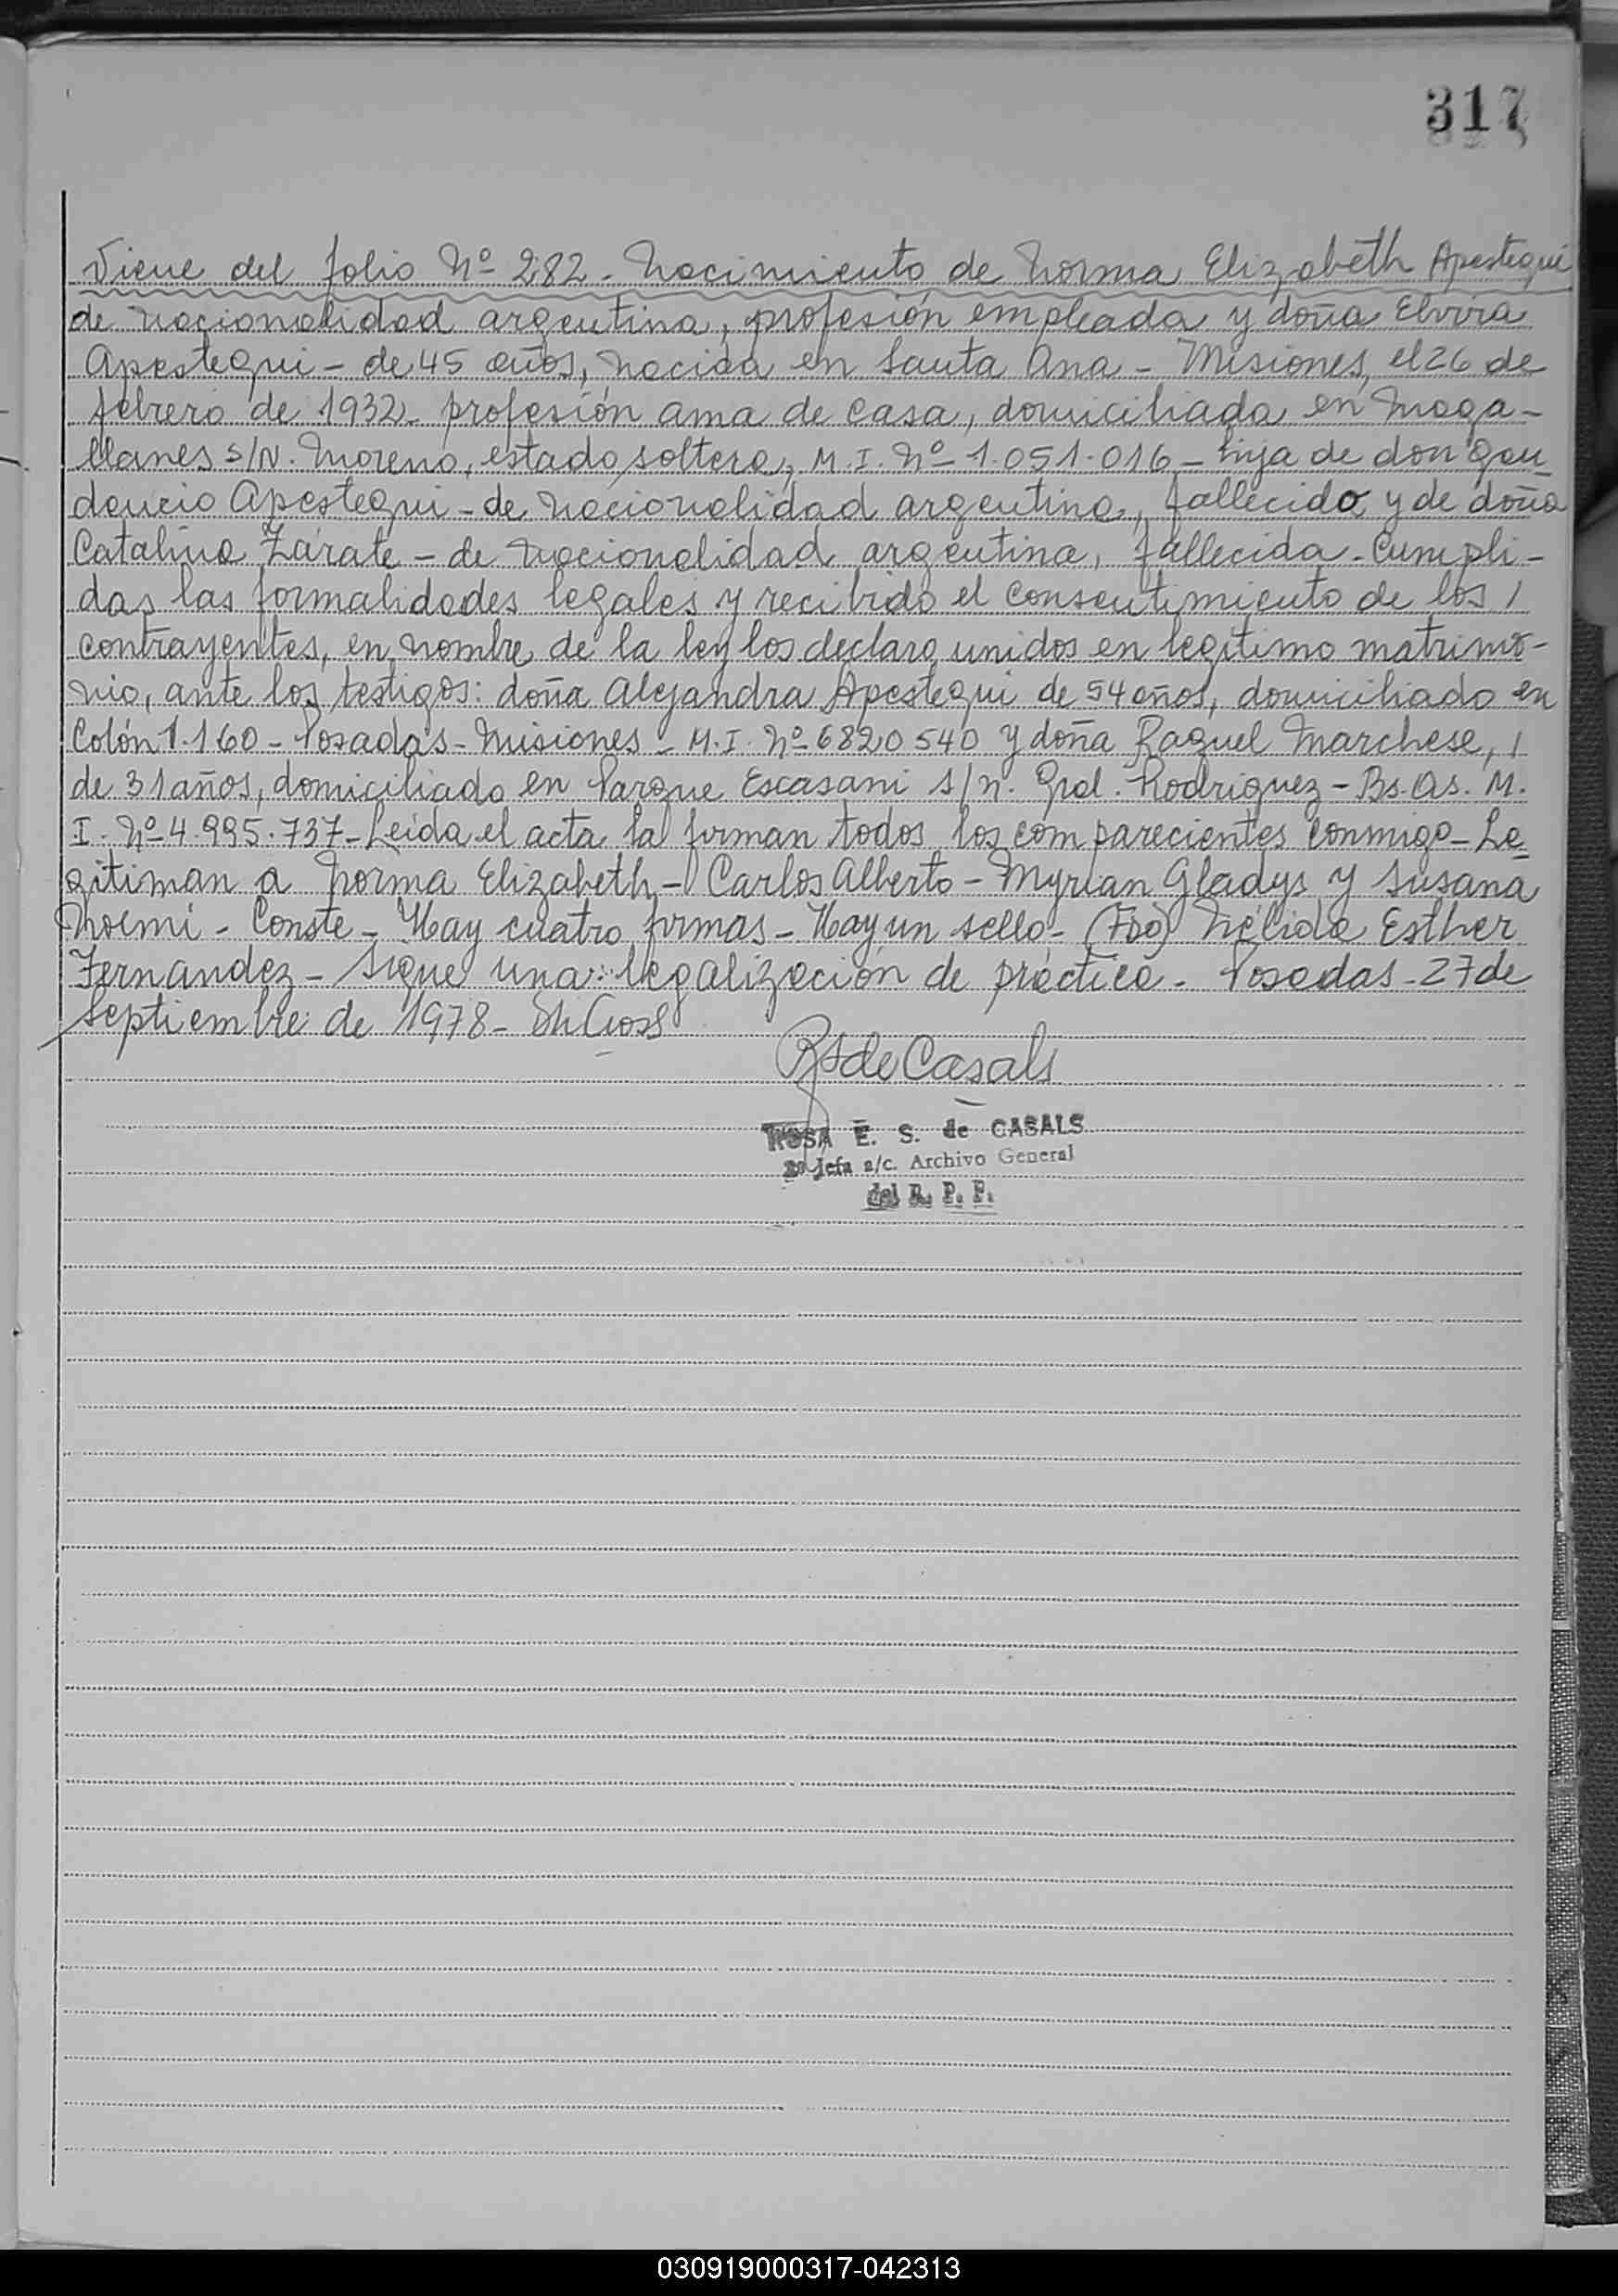 317
Viene del folio Nº 282 - Nacimiento de Norma Elizabeth Apestegui
de nacionalidad argentina, profesión empleada y doña Elvira
Apestegui - de 45 años, nacida en Santa Ana - Misiones, el 26 de
febrero de 1932 - profesión ama de casa, domiciliada en Maga-
llanes s/N. Moreno, estado soltera, M.I. Nº 1.051.016 - hija de don Gau-
dencio Apestegui - de nacionalidad argentina, fallecido y de doña
Catalina Zárate - de nacionalidad argentina, fallecida - Cumpli-
das las formalidades legales y recibido el consentimiento de los /
contrayentes, en nombre de la ley los declaro unidos en legítimo matrimo-
nio, ante los testigos: doña Alejandra Apestegui de 54 años, domiciliado en
Colón 1.160 - Posadas - Misiones - M.I. Nº 6820540 y doña Raquel Marchese, /
de 31 años, domiciliado en Parque Escasani s/n. Gral. Rodríguez - Bs. As. M.
I. Nº 4.995.737 - Leída el acta la firman todos los comparecientes conmigo - Le-
gitiman a Norma Elizabeth - Carlos Alberto - Myrian Gladys y Susana
Noemi - Conste - Hay cuatro firmas - Hay un sello - (Fdo) Nélida Esther
Fernandez - Sigue una legalización de práctica - Posadas - 27 de
Septiembre de 1978 -
RS de Casals
ROSA E. S. de CASALS
Jefa a/c. Archivo General
del R. P. P.
030919000317-042313